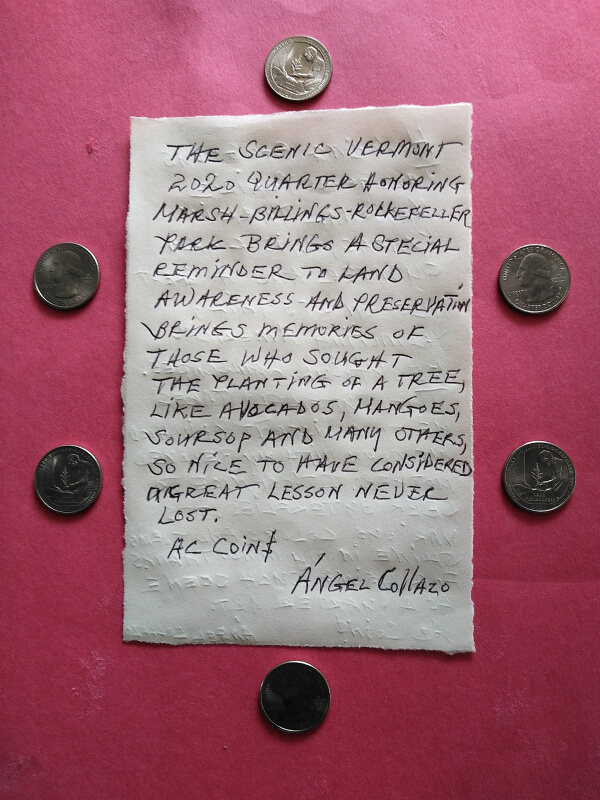 THE SCENIC VERMONT
2020 QUARTER HONORING
MARSH-BILLINGS-ROCKEFELLER
PARK BRINGS A SPECIAL
REMINDER TO LAND
AWARENESS AND PRESERVATION
BRINGS MEMORIES OF
THOSE WHO SOUGHT
THE PLANTING OF A TREE,
LIKE AVOCADOS, MANGOES,
SOURSOP AND MANY OTHERS,
SO NICE TO HAVE CONSIDERED
A GREAT LESSON NEVER
LOST.
AC COIN$
ÁNGEL COLLAZO